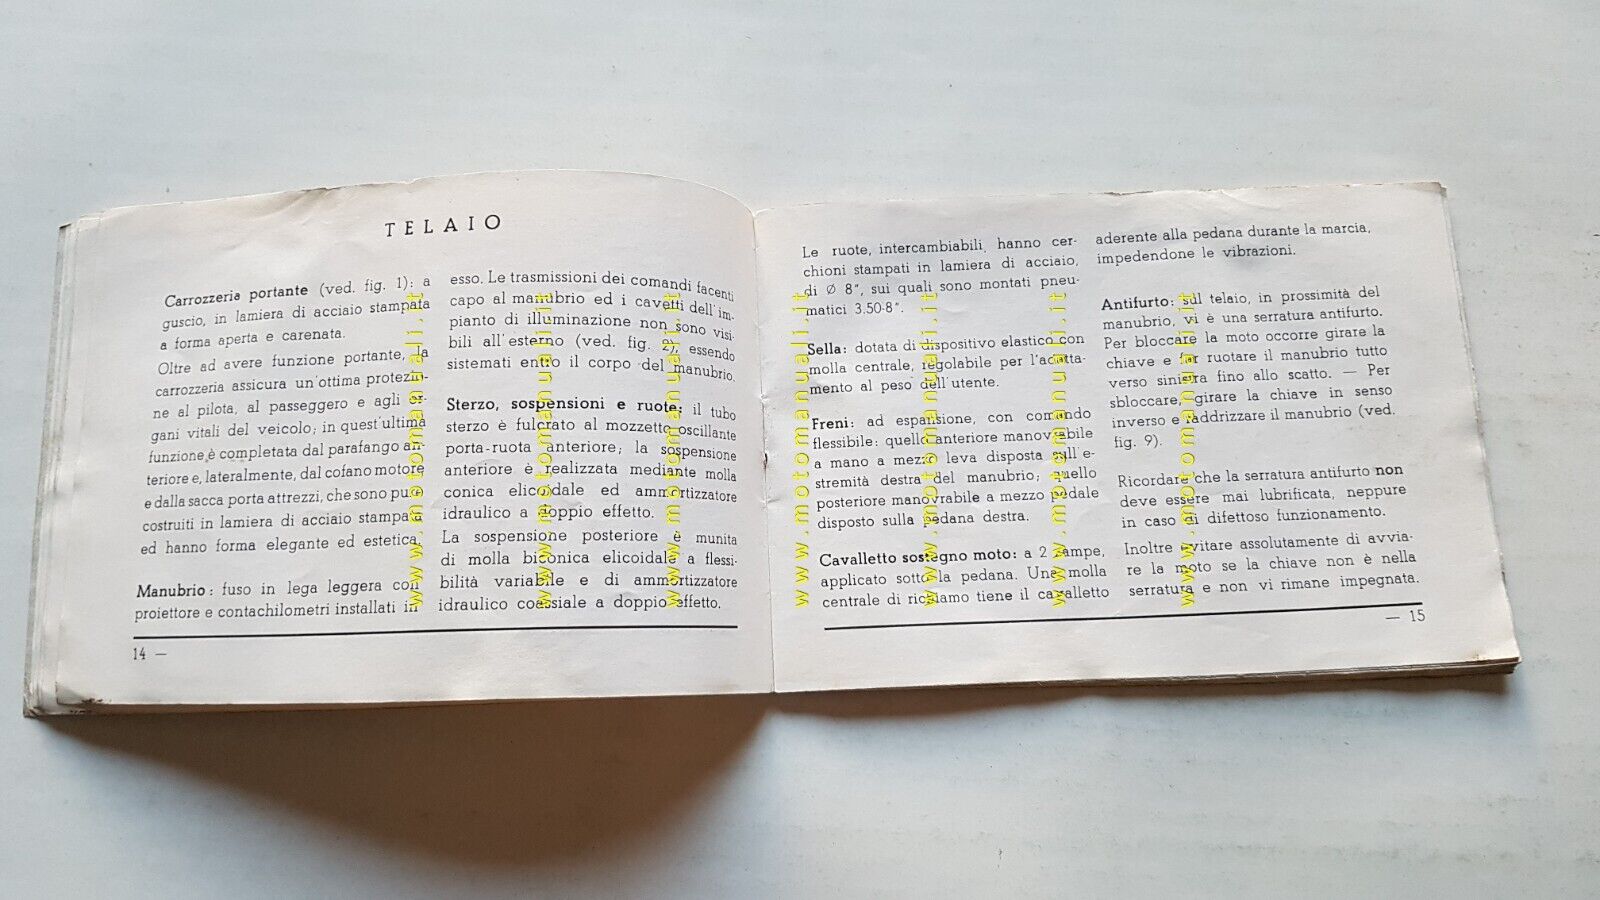 TELAIO
Carrozzeria portante (ved. fig. 1): a
guscio, in lamiera di acciaio stampata
a forma aperta e carenata.
Oltre ad avere funzione portante, la
carrozzeria assicura un'ottima protezio-
ne al pilota, al passeggero e agli or-
gani vitali del veicolo; in quest'ultima
funzione, è completata dal parafango an-
teriore e, lateralmente, dal cofano motore
e dalla sacca porta attrezzi, che sono pure
costruiti in lamiera di acciaio stampata
ed hanno forma elegante ed estetica.
Manubrio: fuso in lega leggera con
proiettore e contachilometri installati in
esso. Le trasmissioni dei comandi facenti
capo al manubrio ed i cavetti dell'im-
pianto di illuminazione non sono visi-
bili all'esterno (ved. fig. 2), essendo
sistemati entro il corpo del manubrio.
Sterzo, sospensioni e ruote: il tubo
sterzo è fulcrato al mozzetto oscillante
porta-ruota anteriore; la sospensione
anteriore è realizzata mediante molla
conica elicoidale ed ammortizzatore
idraulico a doppio effetto.
La sospensione posteriore è munita
di molla biconica elicoidale a flessi-
bilità variabile e di ammortizzatore
idraulico coassiale a doppio effetto.
14 —
Le ruote, intercambiabili, hanno cer-
chioni stampati in lamiera di acciaio,
di Ø 8", sui quali sono montati pneu-
matici 3.50-8".
Sella: dotata di dispositivo elastico con
molla centrale, regolabile per l'adatta-
mento al peso dell'utente.
Freni: ad espansione, con comando
flessibile: quello anteriore manovrabile
a mano a mezzo leva disposta sull'e-
stremità destra del manubrio; quello
posteriore manovrabile a mezzo pedale
disposto sulla pedana destra.
Cavalletto sostegno moto: a 2 zampe,
applicato sotto la pedana. Una molla
centrale di richiamo tiene il cavalletto
aderente alla pedana durante la marcia,
impedendone le vibrazioni.
Antifurto: sul telaio, in prossimità del
manubrio, vi è una serratura antifurto.
Per bloccare la moto occorre girare la
chiave e far ruotare il manubrio tutto
verso sinistra fino allo scatto. — Per
sbloccare, girare la chiave in senso
inverso e raddrizzare il manubrio (ved.
fig. 9).
Ricordare che la serratura antifurto non
deve essere mai lubrificata, neppure
in caso di difettoso funzionamento.
Inoltre evitare assolutamente di avvia-
re la moto se la chiave non è nella
serratura e non vi rimane impegnata.
— 15
www.motomanuali.it
www.motomanuali.it
www.motomanuali.it
www.motomanuali.it
www.motomanuali.it
www.motomanuali.it
www.motomanuali.it